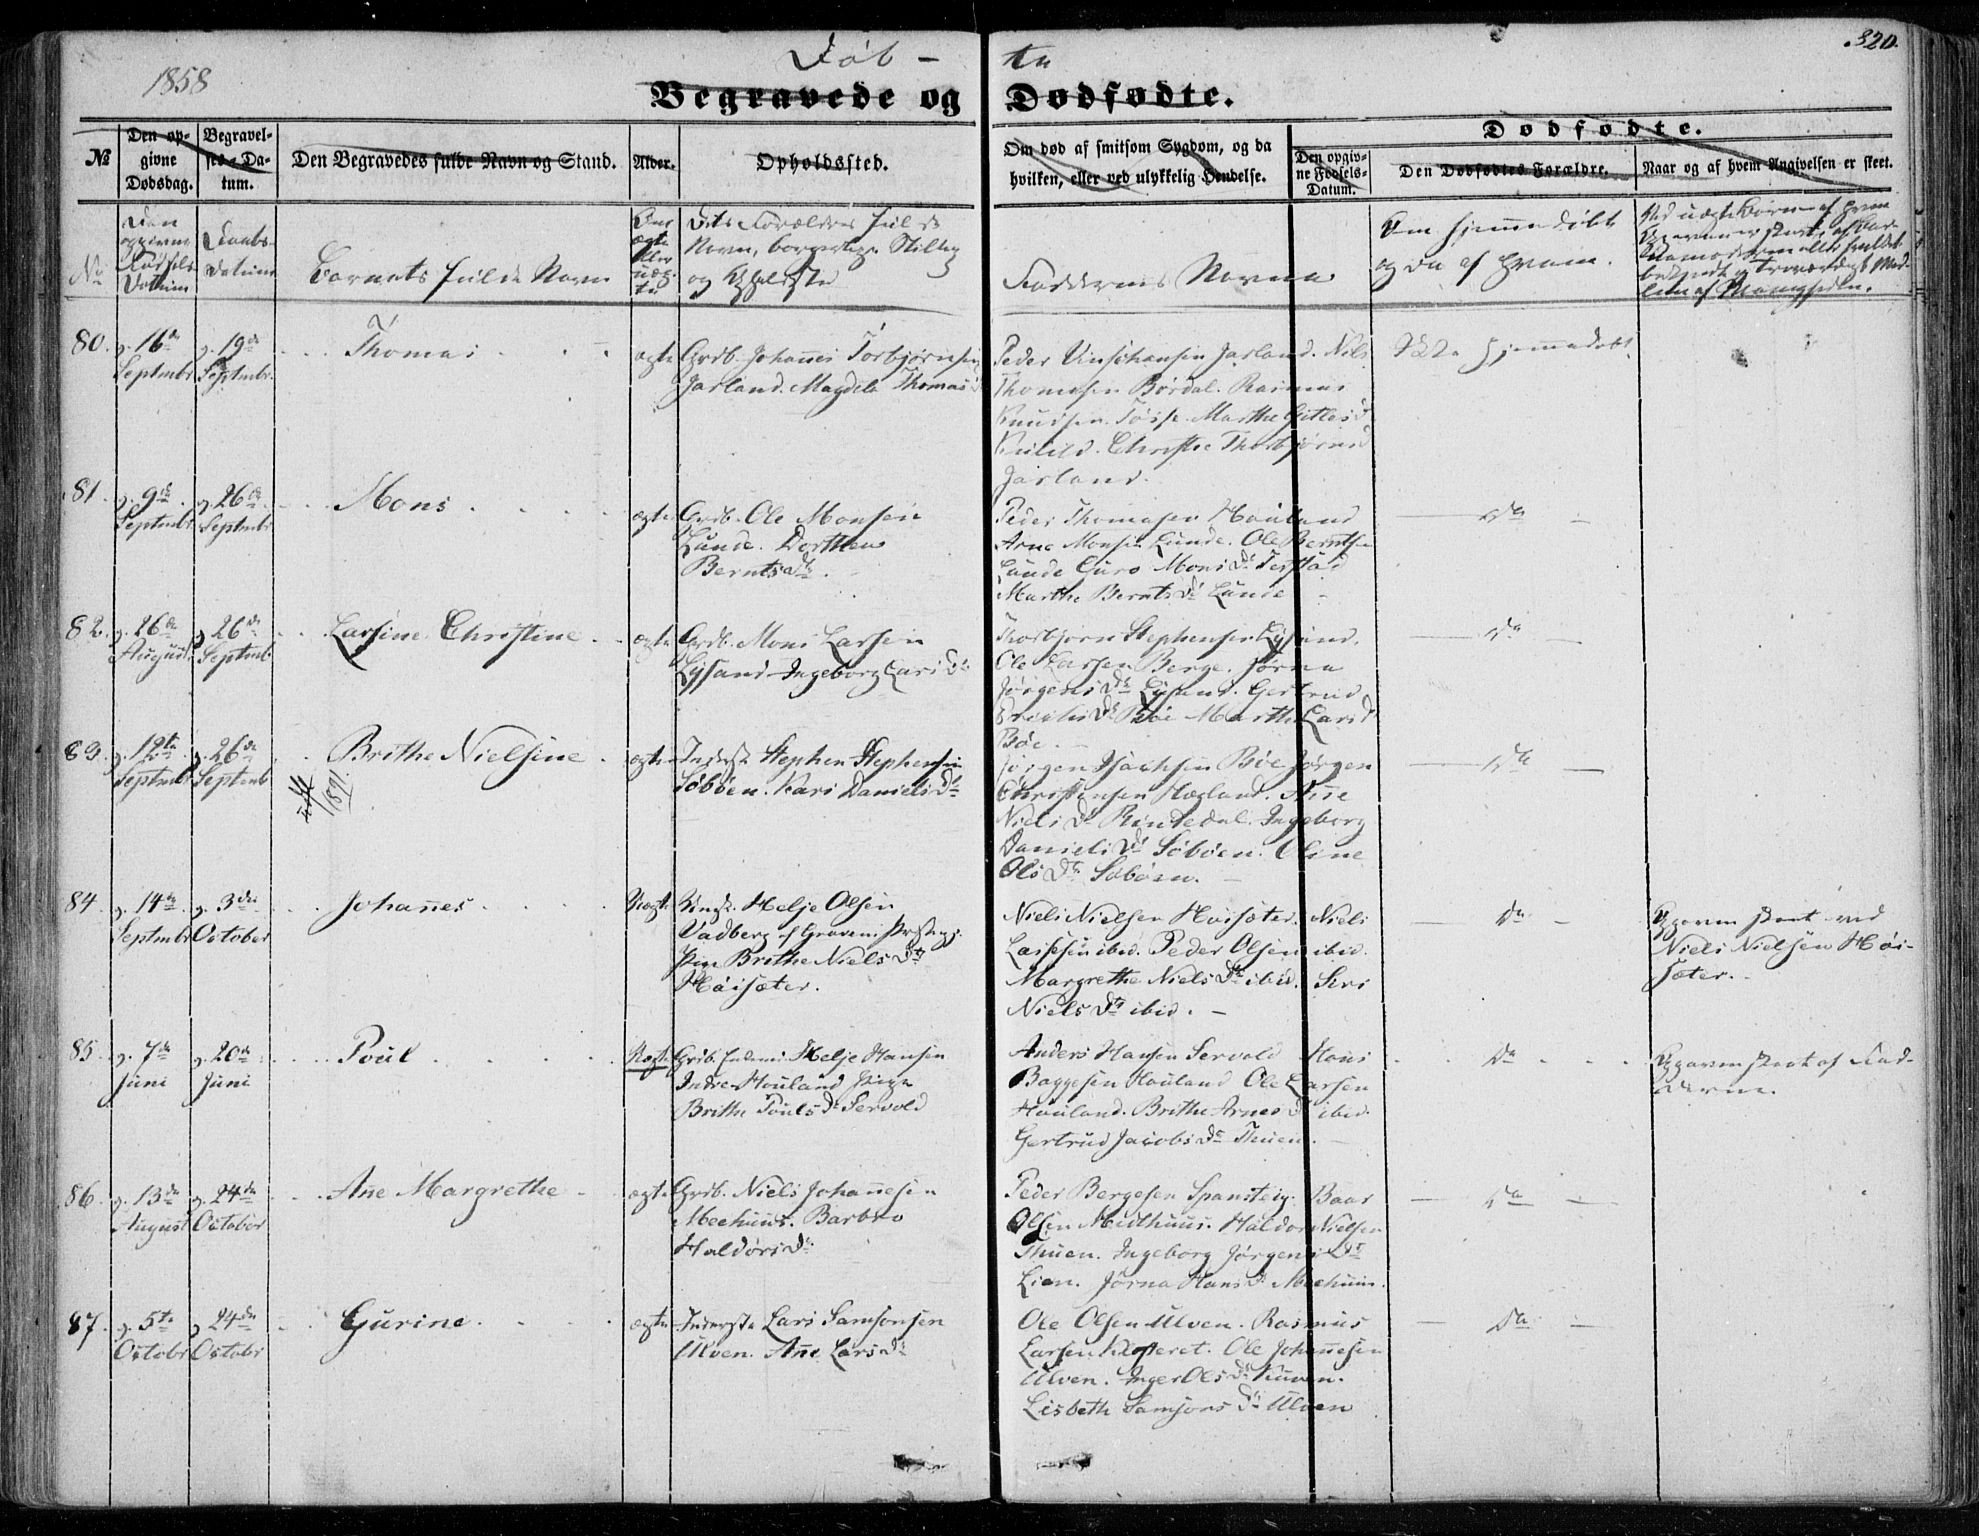 320.
1858
Døb - te
Begravede og Dødfødte.
№
Den op-
givne
Dødsdag.
Begravel-
ses-Da-
tum.
Den Begravedes fulde Navn og Stand.
Alder.
Opholdssted.
Om død af smitsom Sygdom, og da
hvilken, eller ved ulykkelig Hendelse.
Dødfødte.
Den opgiv-
ne Fødsels-
Datum.
Den Dødfødtes Forældre.
Naar og af hvem Angivelsen er skeet.
No
Den
opgivne
Fødsels
Datum
Daabs-
Datum
Barnets fulde Navn
Om
ægte
eller
uæg-
te
Dets Forældres fulde
Navn, borgerlige Stilling
og Opholdsted
Faddernes Navne
Om hjemmedøbt
og da af hvem.
80.
d. 16de
Septmbr
d. 19de
Septmbr.
Thomas
ægte
Grdb. Johanes Torbjørnsen
Jarland. Magdela Thomasd
Peder Vinsjhansen Jarland. Niels
Thomasen Børdal. Rasmus
Knudsen Tøsse. Marthe Gitlesd
Kulild. Christie Thorbjørnsd
Jarland.
Ikke hjemmedøbt
81.
d. 9de
Septmbr
d. 26de
Septmbr
Mons
ægte
Grdb. Ole Monsen
Lunde. Dorthea
BerntsDr.
Peder Thomasen Houland
Arne Monsen Lunde. Ole Berntsen
Lunde Guro MonsDr Ferstad
Marthe BerntsDr Lunde
Do
82.
d. 26de
August
d. 26de
Septmb
Larsine Christine
ægte
Grdb. Mons Larsen
Lysand Ingeborg LarsDr
Thorbjørn Stephensen Lysand.
Ole Larsen Berge. Jørna
JørgensDr Lysand. Gertrud
Dr Bøe Marthe LarsD
Bøe.
Do
83.
d. 12te
Septmbr
d. 26de
Septmb
Brithe Nielsine
1891
ægte
Inderst Stephen Stephensen
Søbøen. Kari DanielsDr
Jørgen Isachsen Bøe Jørgen
Christensen Hægland. Ane
NielsDr Rendedal. Ingeborg
DanielsDr Søbøen. Oline
OlsDr Søbøen.
Do
84.
d. 14de
Septmbr
d. 3die
October
Johanes
Uægte
Helje Olsen
Vadberg af Graven Prstegj.
Pige Brithe NielsDtr
Høisæter.
Niels Nielsen Høisæter. Niels
Lassesen ibid. Peder Olsen ibid.
Margrethe NielsDr ibid. Siri
NielsDr ibid.
Do
Opgaven skeet ved
Niels Nielsen Høi-
sæter.
85.
d. 7de
Juni
d. 20de
Juni
Poul
Uægte
Grdb. Helje Hansen
Indre Houland Pige
Brithe PoulsDr Servold
Anders Hansen Servold Hans
Baggesen Houland Ole Larsen
Houland. Brithe ArnesD ibid.
Gertrud JacobsDr Thuen.
Do
Opgaven skeet af Fad-
derne.
86.
d. 13de
August
d. 24de
October
Ane Margrethe
ægte
Grdb. Niels Johanesen
Meehuus. Barbro
HaldorsDr
Peder Bergesen Spansteig. Baar
Olsen Midthuus. Haldor Nielsen
Thuen. Ingeborg JørgensDr
Lien. Jørna HansD Meehuus.
Do
87.
d. 5te
Octobr
d. 24de
Octobr
Gurine
ægte
Inderste Lars Samsonsen
Ulven. Ane LarsDr
Ole Olsen Ulven. Rasmus
Larsen Klosteret. Ole Johanesen
Ulven. Inger OlsDr Kuven.
Lisbeth SamsonsDr Ulven
Do